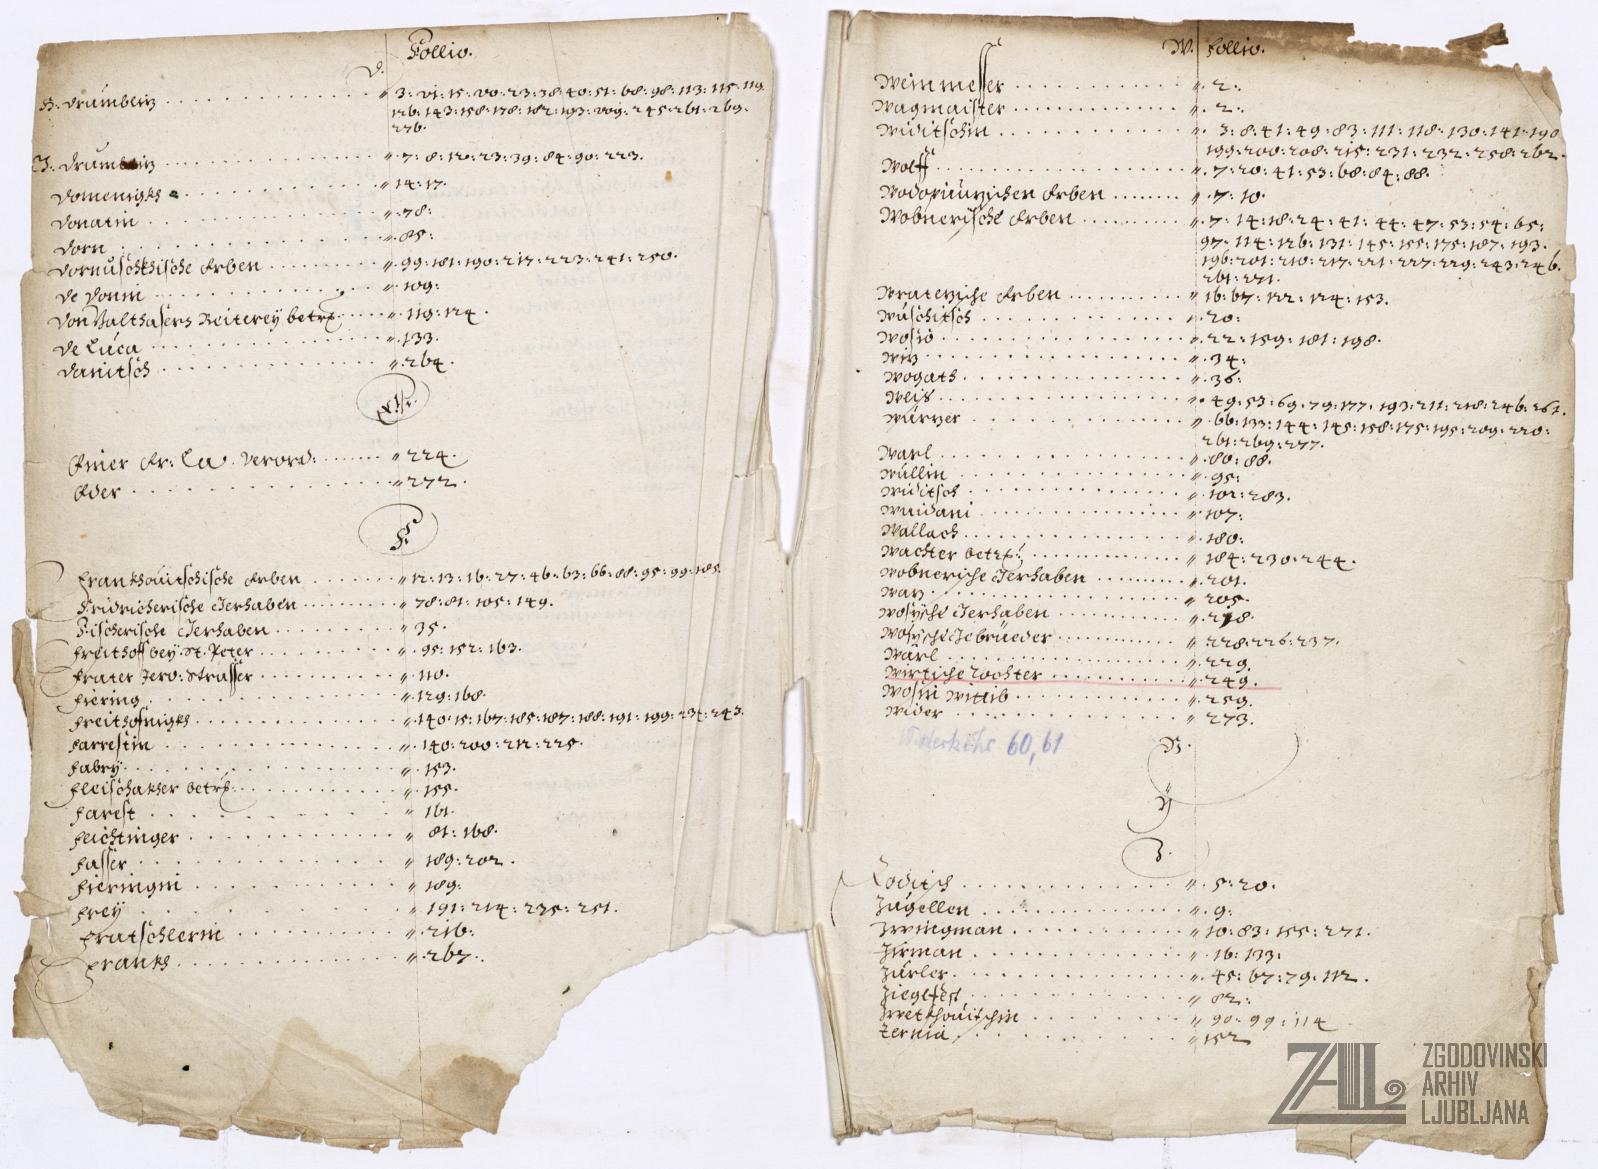 D. Follio.
H. Drumberg " 3: 15: 20: 23: 38: 40: 51: 68: 98: 113: 115: 119
126: 143: 158: 178: 182: 193: 209: 245: 261: 269:
276.
J. Drumberg " 7: 8: 12: 23: 39: 84: 90: 223.
Domenigkh " 14: 17:
Donatin " 78:
Dorn " 85:
Dornuschkhische Erben " 99: 181: 190: 217: 223: 241: 250.
De Donin " 109:
Von Valthasers Reiterey betrf. " 119: 124.
De Luca " 133.
Danitsch " 264.
E.
Einer Er: La. Verord: " 224.
Eder " 272.
F.
Frankhouitschische Erben " 12: 13: 16: 27: 46: 63: 66: 88: 95: 99: 105.
Fridricherische Gerhaben " 78: 81: 105: 149.
Fischerische Gerhaben " 35.
Freithoff bey St. Peter " 95: 152: 163.
Frater Jero: Strasser " 110.
Fiering " 129: 168.
Freithofnigkh " 140: 15: 167: 185: 187: 188: 191: 199: 234: 243.
Farrestin " 140: 200: 212: 225.
Fabry " 153.
Fleischakher betrf. " 155.
Farest " 161.
Feichtinger " 81: 168.
Fasser " 189: 202.
Fieringin " 189:
Frey " 191: 214: 235: 251.
Fratschlerin " 216:
Frankh " 267.
W. Follio.
Weinmesser " 2:
Wagmaister " 2:
Widitschin " 3: 8: 41: 49: 83: 111: 118: 130: 141: 190
199: 200: 208: 215: 231: 232: 258: 262.
Wolff " 7: 20: 41: 53: 68: 84: 88.
Wodopiuzischen Erben " 7: 10.
Wobnerische Erben " 7: 14: 18: 24: 41: 44: 47: 53: 54: 65:
97: 114: 126: 131: 145: 155: 175: 187: 193.
196: 201: 210: 217: 221: 227: 229: 243: 246.
261: 271.
Wratezische Erben " 16: 67: 122: 124: 153.
Wuschitsch " 20:
Wosio " 22: 159: 181: 198.
Wiz " 34:
Wogath " 36:
Weis " 49: 53: 69: 79: 177: 193: 211: 218: 246: 261.
Wurzer " 66: 133: 144: 145: 158: 175: 195: 209: 220:
261: 269: 277.
Warl " 80: 88.
Wullin " 95:
Widitsch " 102: 283.
Wuidani " 107:
Wallach " 180:
Wachter betrf: " 184: 230: 244.
Wobnerische Gerhaben " 201.
Waz " 205.
Wosysche Gerhaben " 218.
Wosysche Gebrüeder " 228: 226: 237.
Wärl " 229.
Wirtische Tochter " 249.
Wosin Wittib " 259.
Wider " 273.
Widerkehr 60, 61
X.
Y
Z.
Zoditsch " 5: 20.
Zugellen " 9:
Zwingman " 10: 83: 155: 271.
Zirman " 16: 133.
Zurler " 45: 67: 79: 112.
Zieglfest " 82:
Zwetkhouitschin " 90: 99: 114
Zernia " 152
ZAL
ZGODOVINSKI
ARHIV
LJUBLJANA